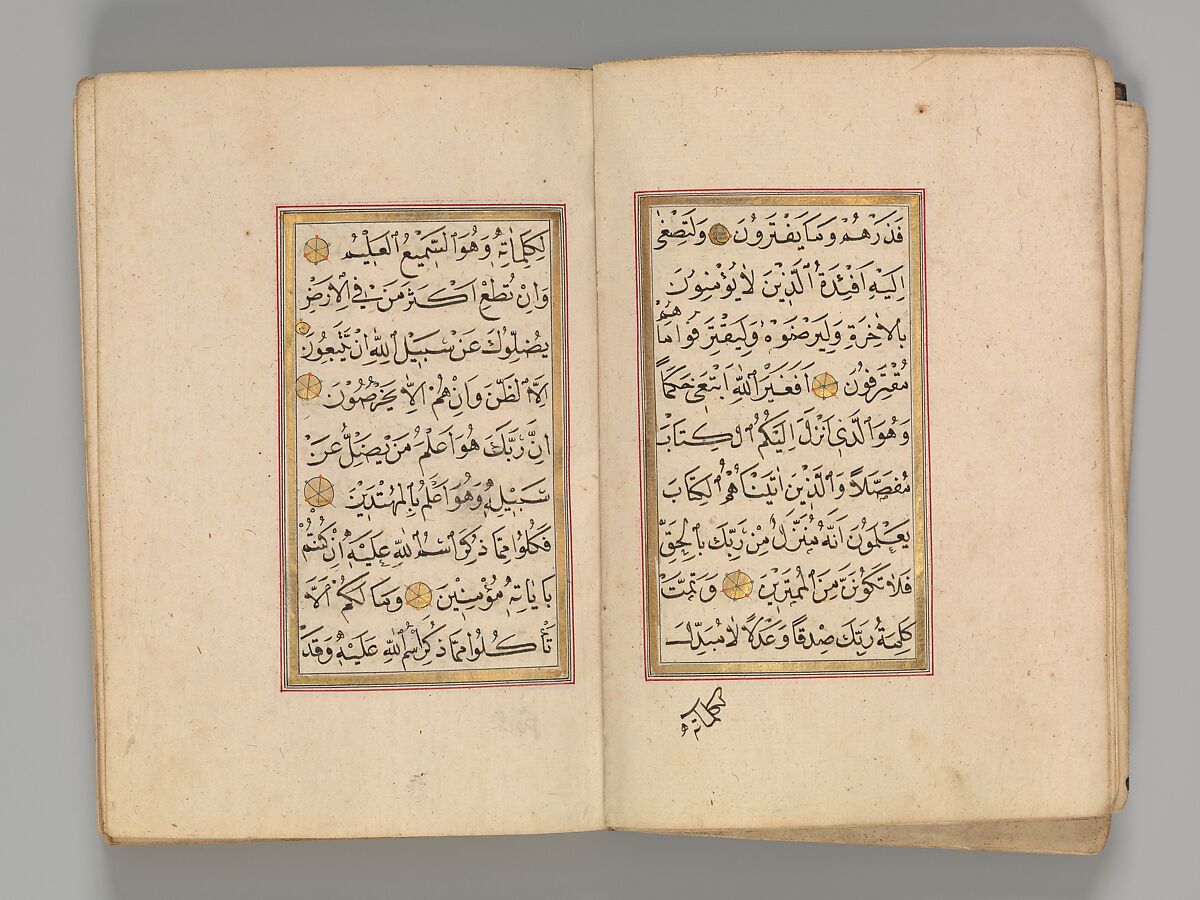 فَذَرْهُمْ وَمَا يَفْتَرُونَ وَلِتَصْغٰى
اِلَيْهِ اَفْئِدَةُ الَّذِينَ لَا يُؤْمِنُونَ
بِالْاٰخِرَةِ وَلِيَرْضَوْهُ وَلِيَقْتَرِفُوا مَا هُمْ
مُقْتَرِفُونَ اَفَغَيْرَ اللّٰهِ اَبْتَغِى حَكَمًا
وَهُوَ الَّذِى اَنْزَلَ اِلَيْكُمُ الْكِتَابَ
مُفَصَّلًا وَالَّذِينَ اٰتَيْنَاهُمُ الْكِتَابَ
يَعْلَمُونَ اَنَّهُ مُنَزَّلٌ مِنْ رَبِّكَ بِالْحَقِّ
فَلَا تَكُونَنَّ مِنَ الْمُمْتَرِينَ وَتَمَّتْ
كَلِمَةُ رَبِّكَ صِدْقًا وَعَدْلًا لَا مُبَدِّلَ
لكلماته
لِكَلِمَاتِهِ وَهُوَ السَّمِيعُ الْعَلِيمُ
وَاِنْ تُطِعْ اَكْثَرَ مَنْ فِى الْاَرْضِ
يُضِلُّوكَ عَنْ سَبِيلِ اللّٰهِ اِنْ يَتَّبِعُونَ
اِلَّا الظَّنَّ وَاِنْ هُمْ اِلَّا يَخْرُصُونَ
اِنَّ رَبَّكَ هُوَ اَعْلَمُ مَنْ يَضِلُّ عَنْ
سَبِيلِهِ وَهُوَ اَعْلَمُ بِالْمُهْتَدِينَ
فَكُلُوا مِمَّا ذُكِرَ اسْمُ اللّٰهِ عَلَيْهِ اِنْ كُنْتُمْ
بِاٰيَاتِهِ مُؤْمِنِينَ وَمَا لَكُمْ اَلَّا
تَأْكُلُوا مِمَّا ذُكِرَ اسْمُ اللّٰهِ عَلَيْهِ وَقَدْ